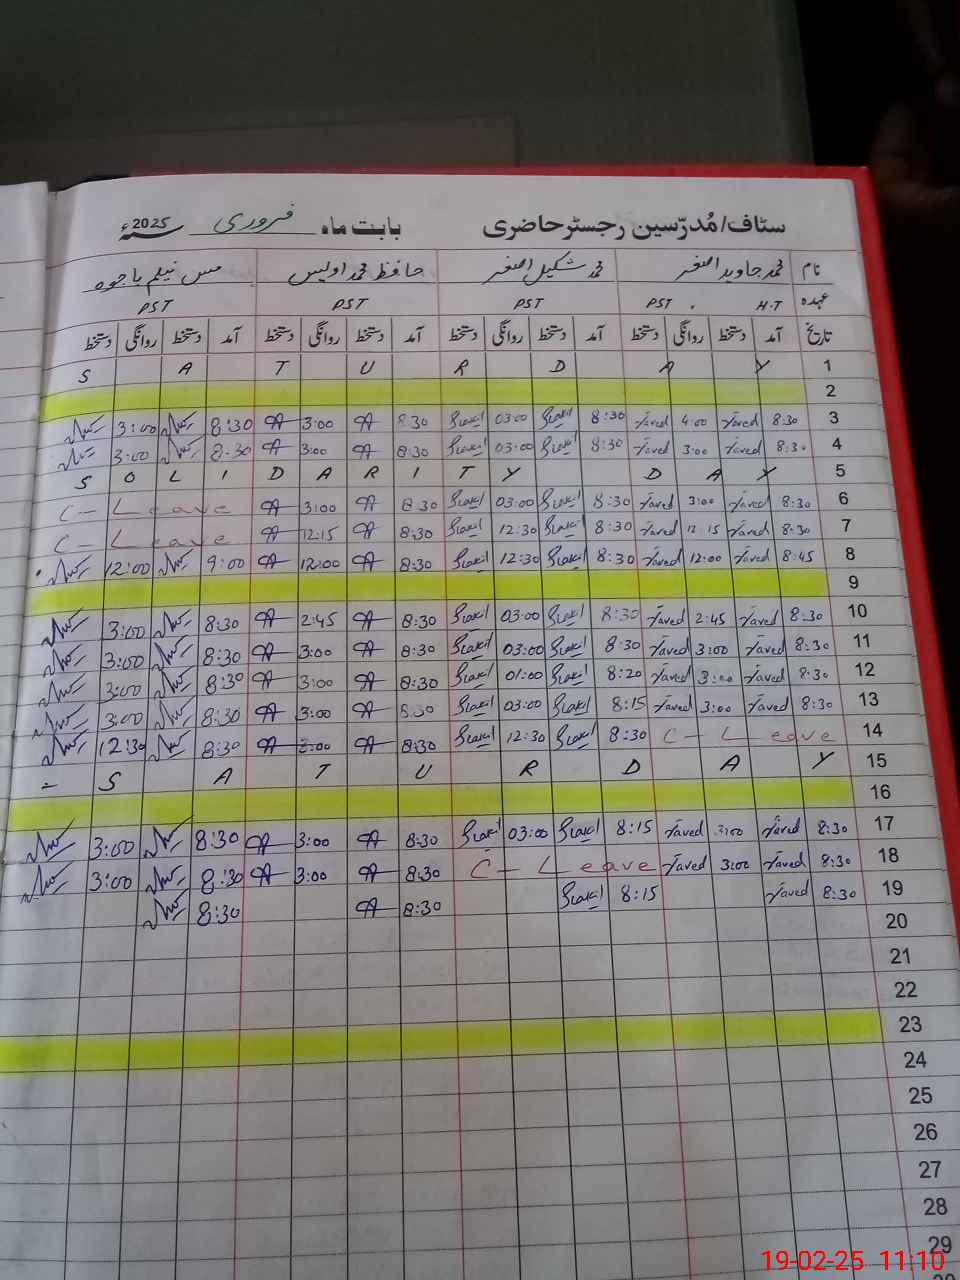 سٹاف/مُدرّسین رجسٹر حاضری بابت ماہ فروری سنہ 2025ء
نام محمد جاوید اصغر محمد شکیل اصغر حافظ محمد اویس مس نیلم باجوہ
عہدہ H.T PST PST PST PST
تاریخ آمد دستخط روانگی دستخط آمد دستخط روانگی دستخط آمد دستخط روانگی دستخط آمد دستخط روانگی دستخط
1 S A T U R D A Y
2
3 8:30 Javed 4:00 Javed 8:30 Shakil 03:00 Shakil 8:30 3:00 8:30 3:00
4 8:30 Javed 3:00 Javed 8:30 Shakil 03:00 Shakil 8:30 3:00 8:30 3:00
5 S O L I D A R I T Y D A Y
6 8:30 Javed 3:00 Javed 8:30 Shakil 03:00 Shakil 8:30 3:00 C - Leave
7 8:30 Javed 12:15 Javed 8:30 Shakil 12:30 Shakil 8:30 12:15 C - Leave
8 8:45 Javed 12:00 Javed 8:30 Shakil 12:30 Shakil 8:30 12:00 9:00 12:00
9
10 8:30 Javed 2:45 Javed 8:30 Shakil 03:00 Shakil 8:30 2:45 8:30 3:00
11 8:30 Javed 3:00 Javed 8:30 Shakil 03:00 Shakil 8:30 3:00 8:30 3:00
12 8:30 Javed 3:00 Javed 8:20 Shakil 01:00 Shakil 8:30 3:00 8:30 3:00
13 8:30 Javed 3:00 Javed 8:15 Shakil 03:00 Shakil 8:30 3:00 8:30 3:00
14 C - Leave 8:30 Shakil 12:30 Shakil 8:30 8:30 12:30
15 S A T U R D A Y
16
17 8:30 Javed 3:00 Javed 8:15 Shakil 03:00 Shakil 8:30 3:00 8:30 3:00
18 8:30 Javed 3:00 Javed C - Leave 8:30 3:00 8:30 3:00
19 8:30 Javed 8:15 Shakil 8:30 8:30
20
21
22
23
24
25
26
27
28
29
19-02-25 11:10